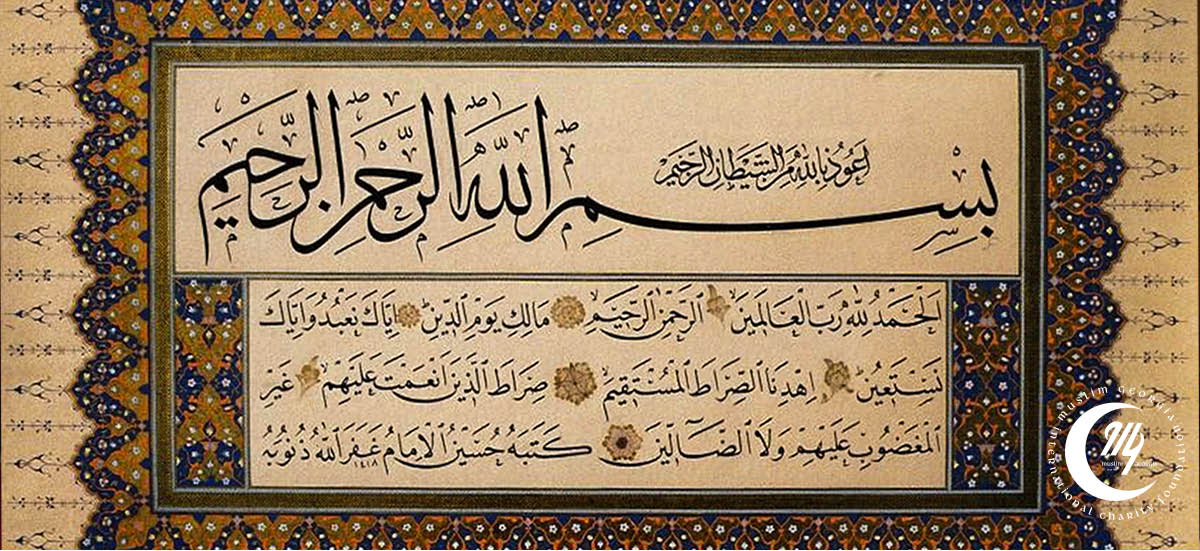 أَعُوذُ بِاللهِ مِنَ الشَّيْطَانِ الرَّجِيمِ
بِسْمِ اللهِ الرَّحْمٰنِ الرَّحِيمِ
اَلْحَمْدُ لِلّٰهِ رَبِّ الْعَالَمِينَ الرَّحْمٰنِ الرَّحِيمِ مَالِكِ يَوْمِ الدِّينِ اِيَّاكَ نَعْبُدُ وَاِيَّاكَ
نَسْتَعِينُ اِهْدِنَا الصِّرَاطَ الْمُسْتَقِيمَ صِرَاطَ الَّذِينَ اَنْعَمْتَ عَلَيْهِمْ غَيْرِ
الْمَغْضُوبِ عَلَيْهِمْ وَلَا الضَّٓالِّينَ كَتَبَهُ حُسَيْنُ الْاِمَامُ غَفَرَ اللهُ ذُنُوبَهُ
١٤١٨
muslim georgia
international charity foundation